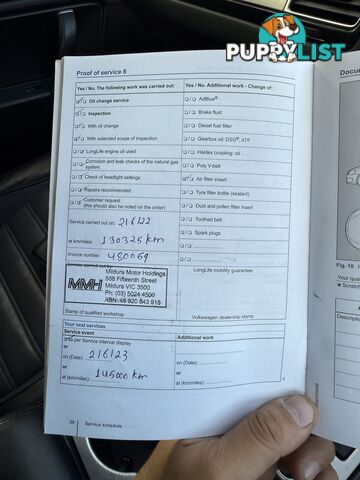 PUPPYLIST
Proof of service 8
Yes / No. The following work was carried out:
Yes / No. Additional work - Change of:
Oil change service
AdBlue®
Inspection
Brake fluid
With oil change
Diesel fuel filter
With extended scope of inspection
Gearbox oil: DSG®, ATF
LongLife engine oil used
Haldex coupling: oil
Corrosion and leak checks of the natural gas
system
Poly V-belt
Check of headlight settings
Air filter insert
Repairs recommended
Tyre filler bottle (sealant)
Customer request
(this should also be noted on the order)
Dust and pollen filter insert
Toothed belt
Service carried out on: 216122
Spark plugs
at km/miles: 130325 km
Invoice number: 480059
Service carried out by:
LongLife mobility guarantee:
MMH
Mildura Motor Holdings
588 Fifteenth Street
Mildura VIC 3500
Ph: (03) 5024 4500
Stamp of qualified workshop
Volkswagen dealership stamp
Your next services
Service event
Additional work
as per Service interval display
or
on (Date): 216123
on (Date):
or
or
at (km/miles): 145000 km
at (km/miles):
28 Service schedule
Docum
Fig. 10
Scratch
Description